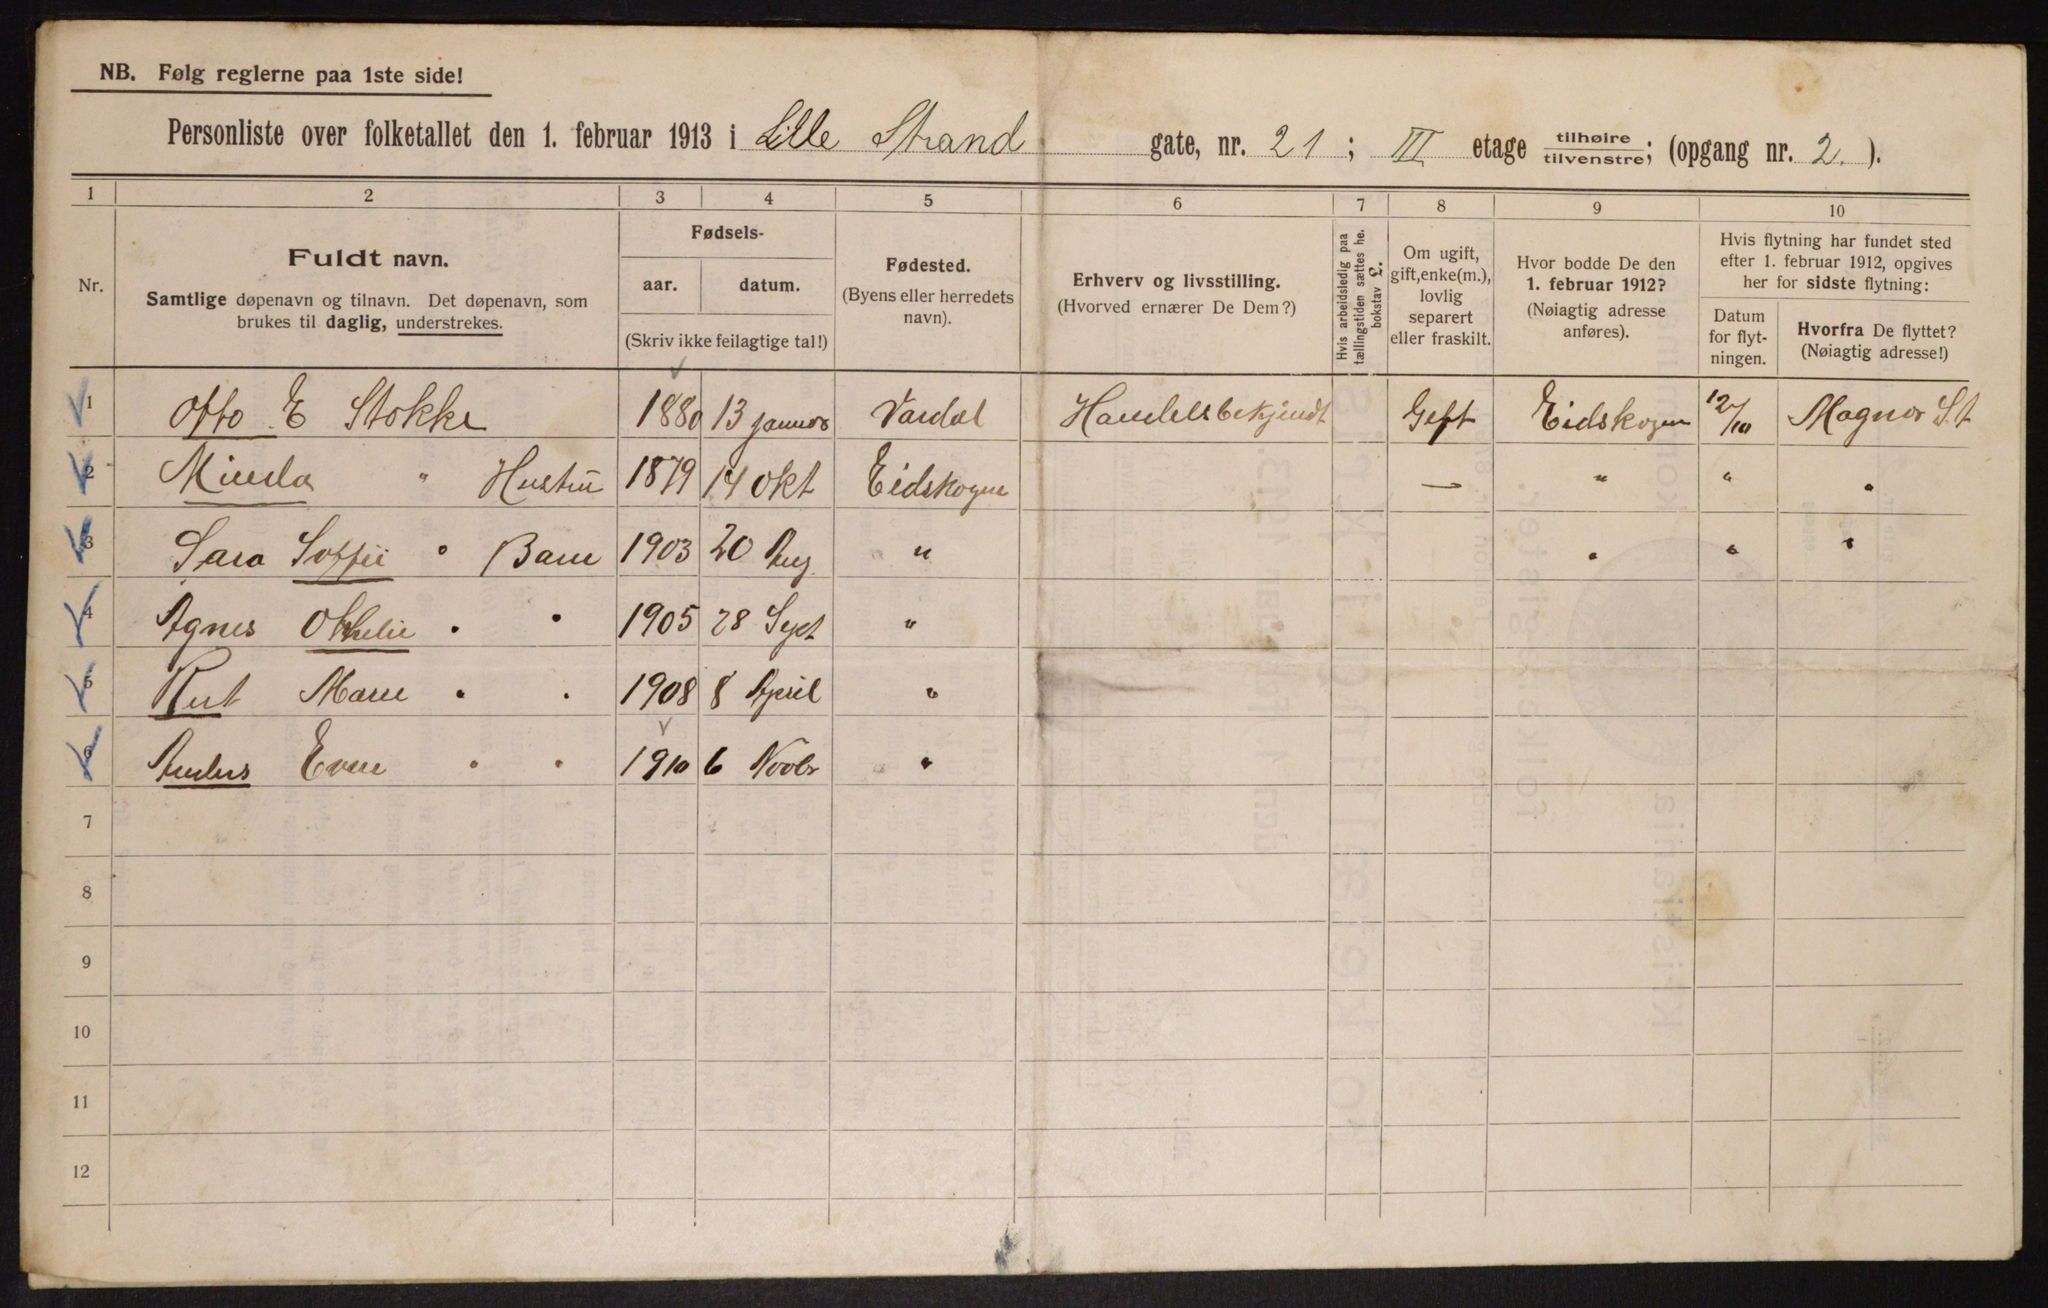 NB. Følg reglerne paa 1ste side!
Personliste over folketallet den 1. februar 1913 i Lille Strand gate, nr. 21 ; III etage tilhøire / tilvenstre; (opgang nr. 2. ).
1 2 3 4 5 6 7 8 9 10
Nr.
Fuldt navn.
Samtlige døpenavn og tilnavn. Det døpenavn, som
brukes til daglig, understrekes.
Fødsels-
aar. datum.
(Skriv ikke feilagtige tal!)
Fødested.
(Byens eller herredets
navn).
Erhverv og livsstilling.
(Hvorved ernærer De Dem?)
Hvis arbeidsledig paa
tællingstiden sættes he.
bokstav L.
Om ugift,
gift, enke(m.),
lovlig
separert
eller fraskilt.
Hvor bodde De den
1. februar 1912?
(Nøiagtig adresse
anføres).
Hvis flytning har fundet sted
efter 1. februar 1912, opgives
her for sidste flytning:
Datum
for flyt-
ningen.
Hvorfra De flyttet?
(Nøiagtig adresse!)
1 Otto E Stokke 1880 13 januar Vardal Handelsbetjendt Gift Eidskogen 12/10 Magnor St
2 Minda " Hustru 1879 14 Okt Eidskogen — " " "
3 Sara Soffie " Barn 1903 20 Aug " " " "
4 Agnes Othelie " " 1905 28 Sept "
5 Rut Marie " " 1908 8 April "
6 Anders Even " " 1910 6 Novbr "
7
8
9
10
11
12